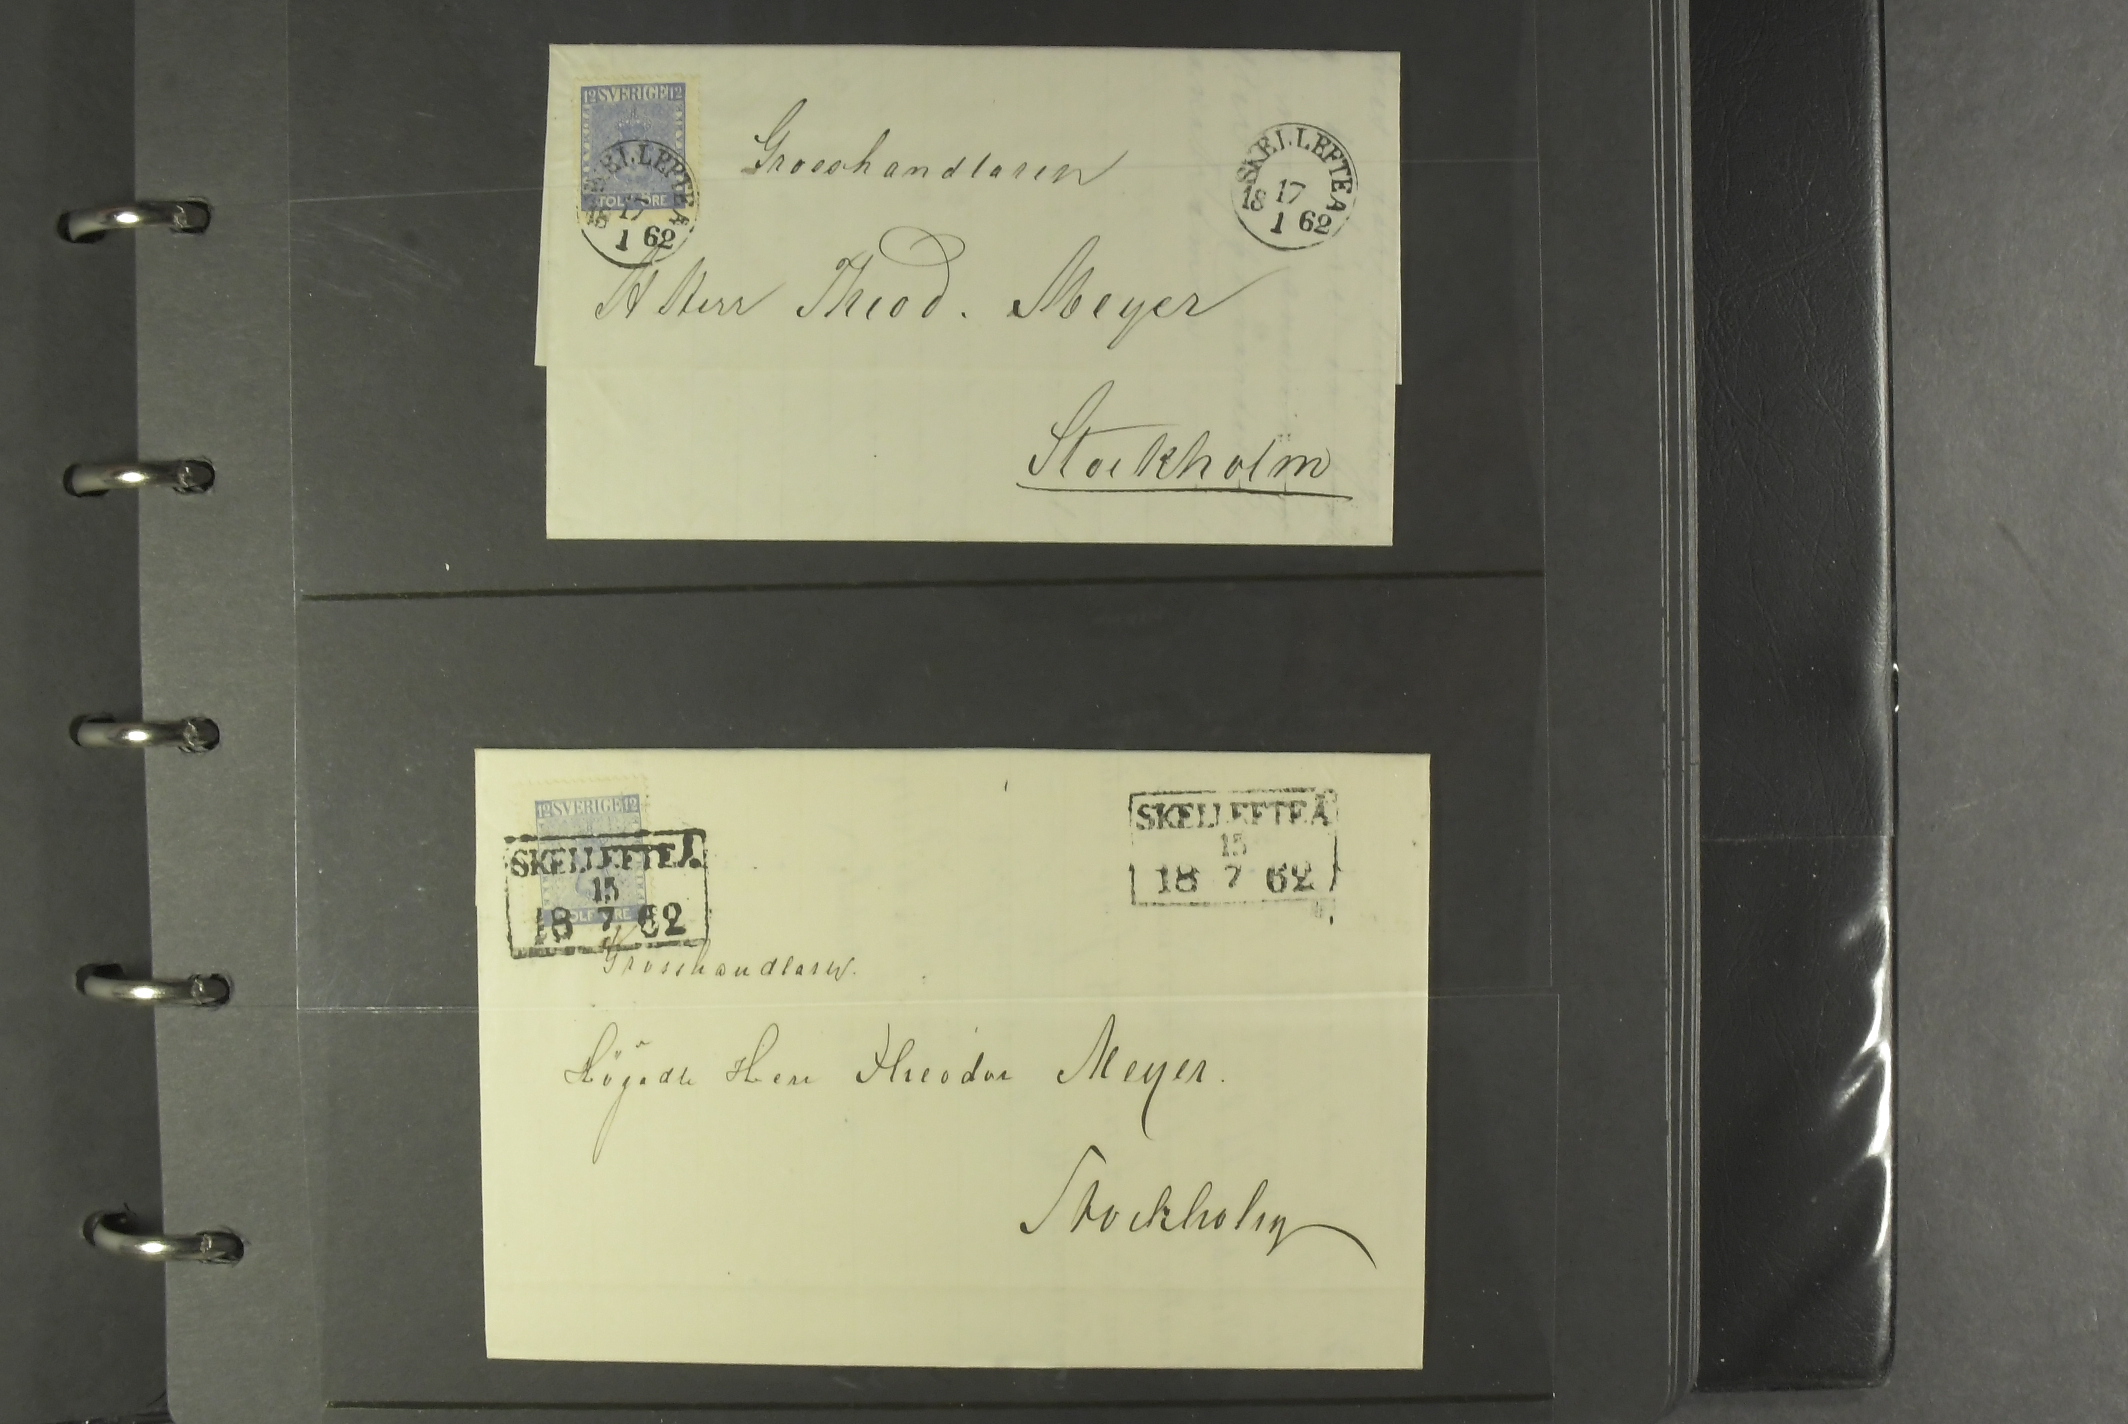 12 SVERIGE 12
TOLF ÖRE
SKELLEFTEÅ
17
18 1 62
SKELLEFTEÅ
17
18 1 62
Grosshandlaren
Herr Theod. Meyer
Stockholm
12 SVERIGE 12
TOLF ÖRE
SKELLEFTEÅ
15
18 7 62
SKELLEFTEÅ
15
18 7 62
Grosshandlaren
Herr Theodor Meyer.
Stockholm